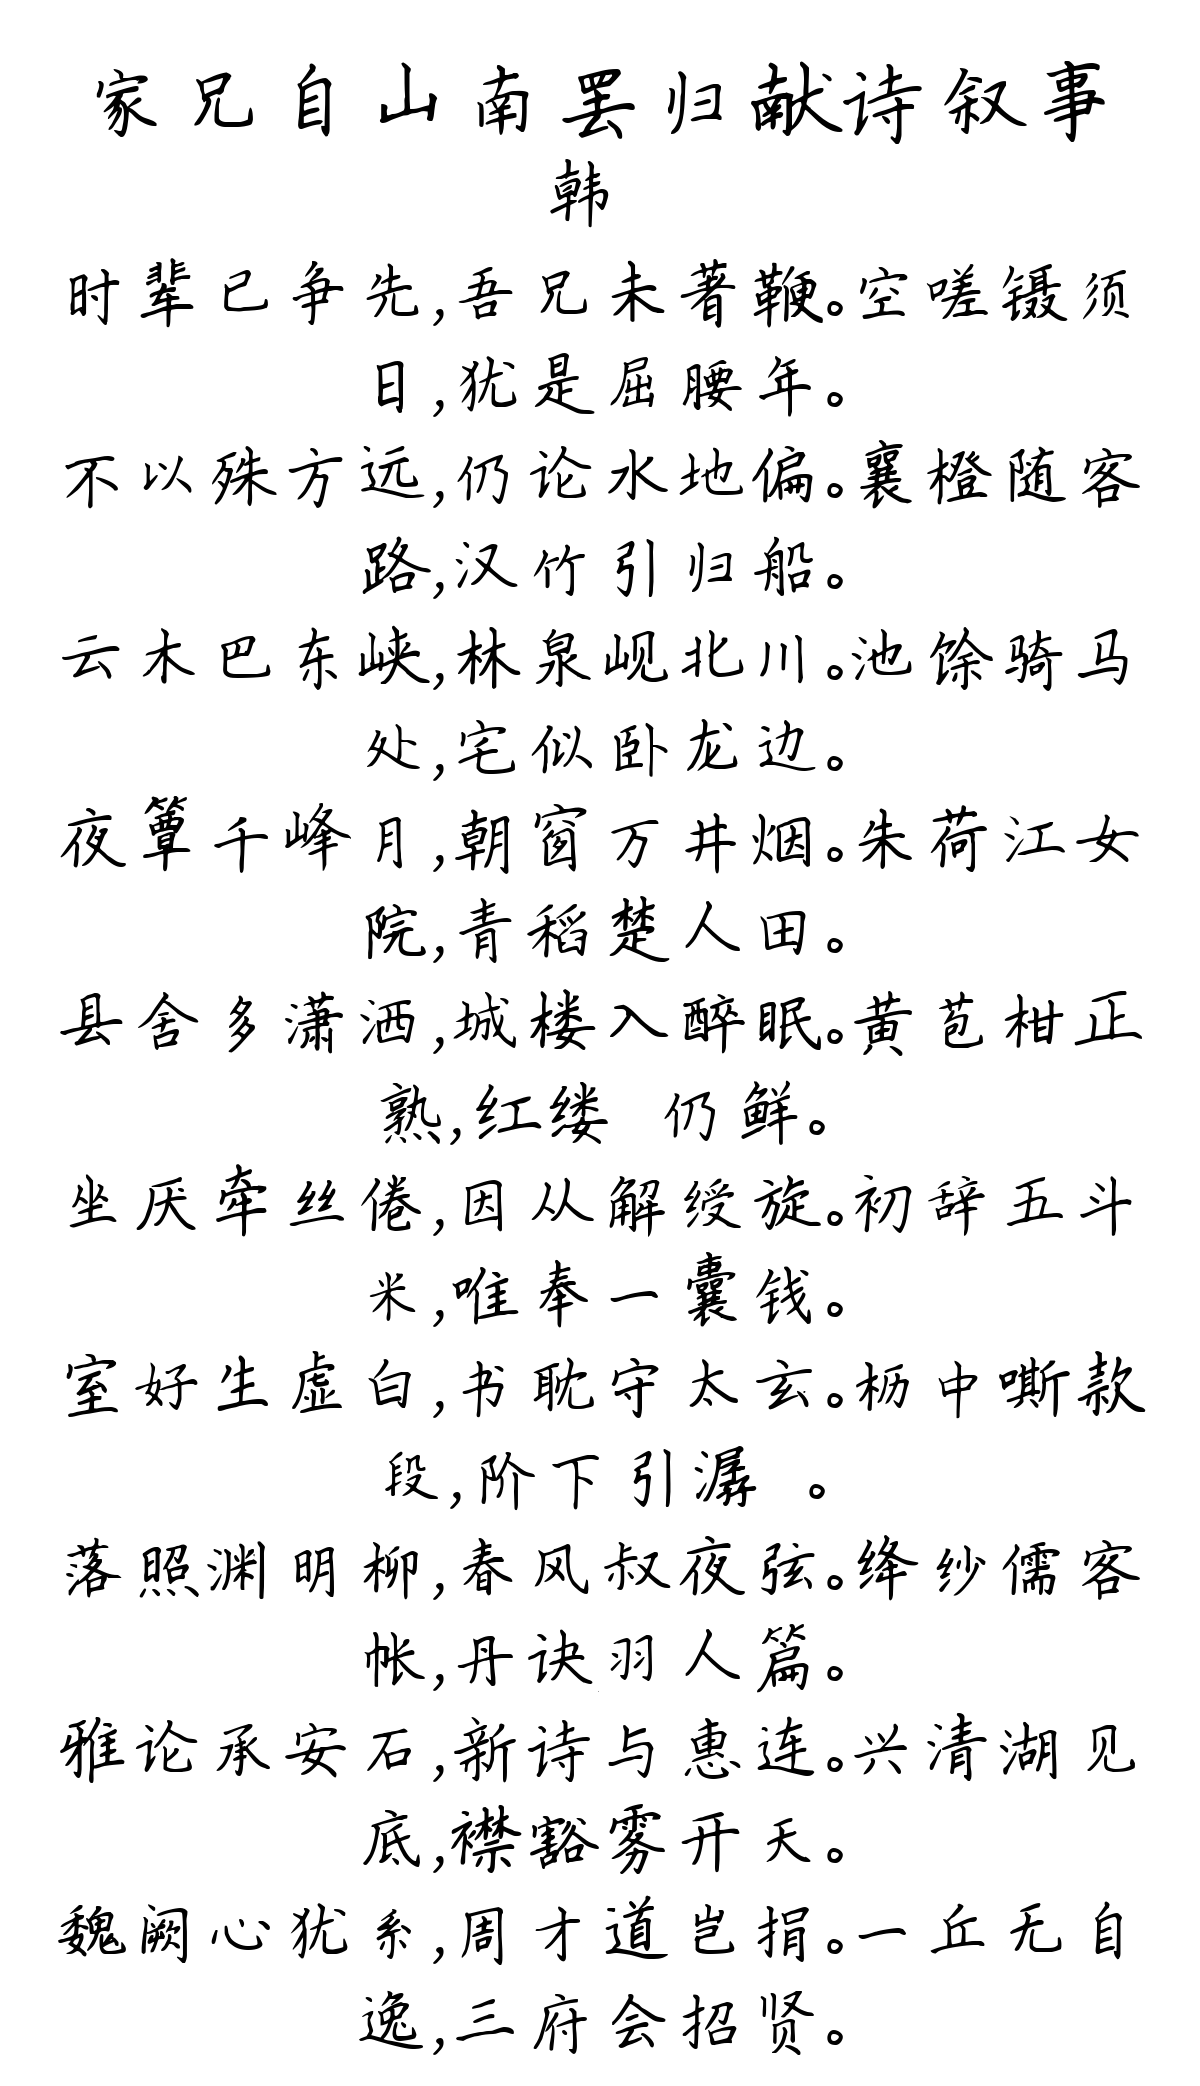 家兄自山南罢归献诗叙事
韩
时辈已争先,吾兄未著鞭。空嗟镊须
日,犹是屈腰年。
不以殊方远,仍论水地偏。襄橙随客
路,汉竹引归船。
云木巴东峡,林泉岘北川。池馀骑马
处,宅似卧龙边。
夜簟千峰月,朝窗万井烟。朱荷江女
院,青稻楚人田。
县舍多潇洒,城楼入醉眠。黄苞柑正
熟,红缕 仍鲜。
坐厌牵丝倦,因从解绶旋。初辞五斗
米,唯奉一囊钱。
室好生虚白,书耽守太玄。枥中嘶款
段,阶下引潺 。
落照渊明柳,春风叔夜弦。绛纱儒客
帐,丹诀羽人篇。
雅论承安石,新诗与惠连。兴清湖见
底,襟豁雾开天。
魏阙心犹系,周才道岂捐。一丘无自
逸,三府会招贤。